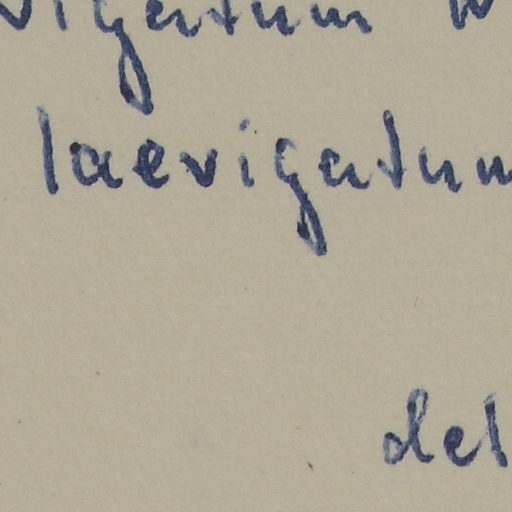 vigatum
laevigatum
det